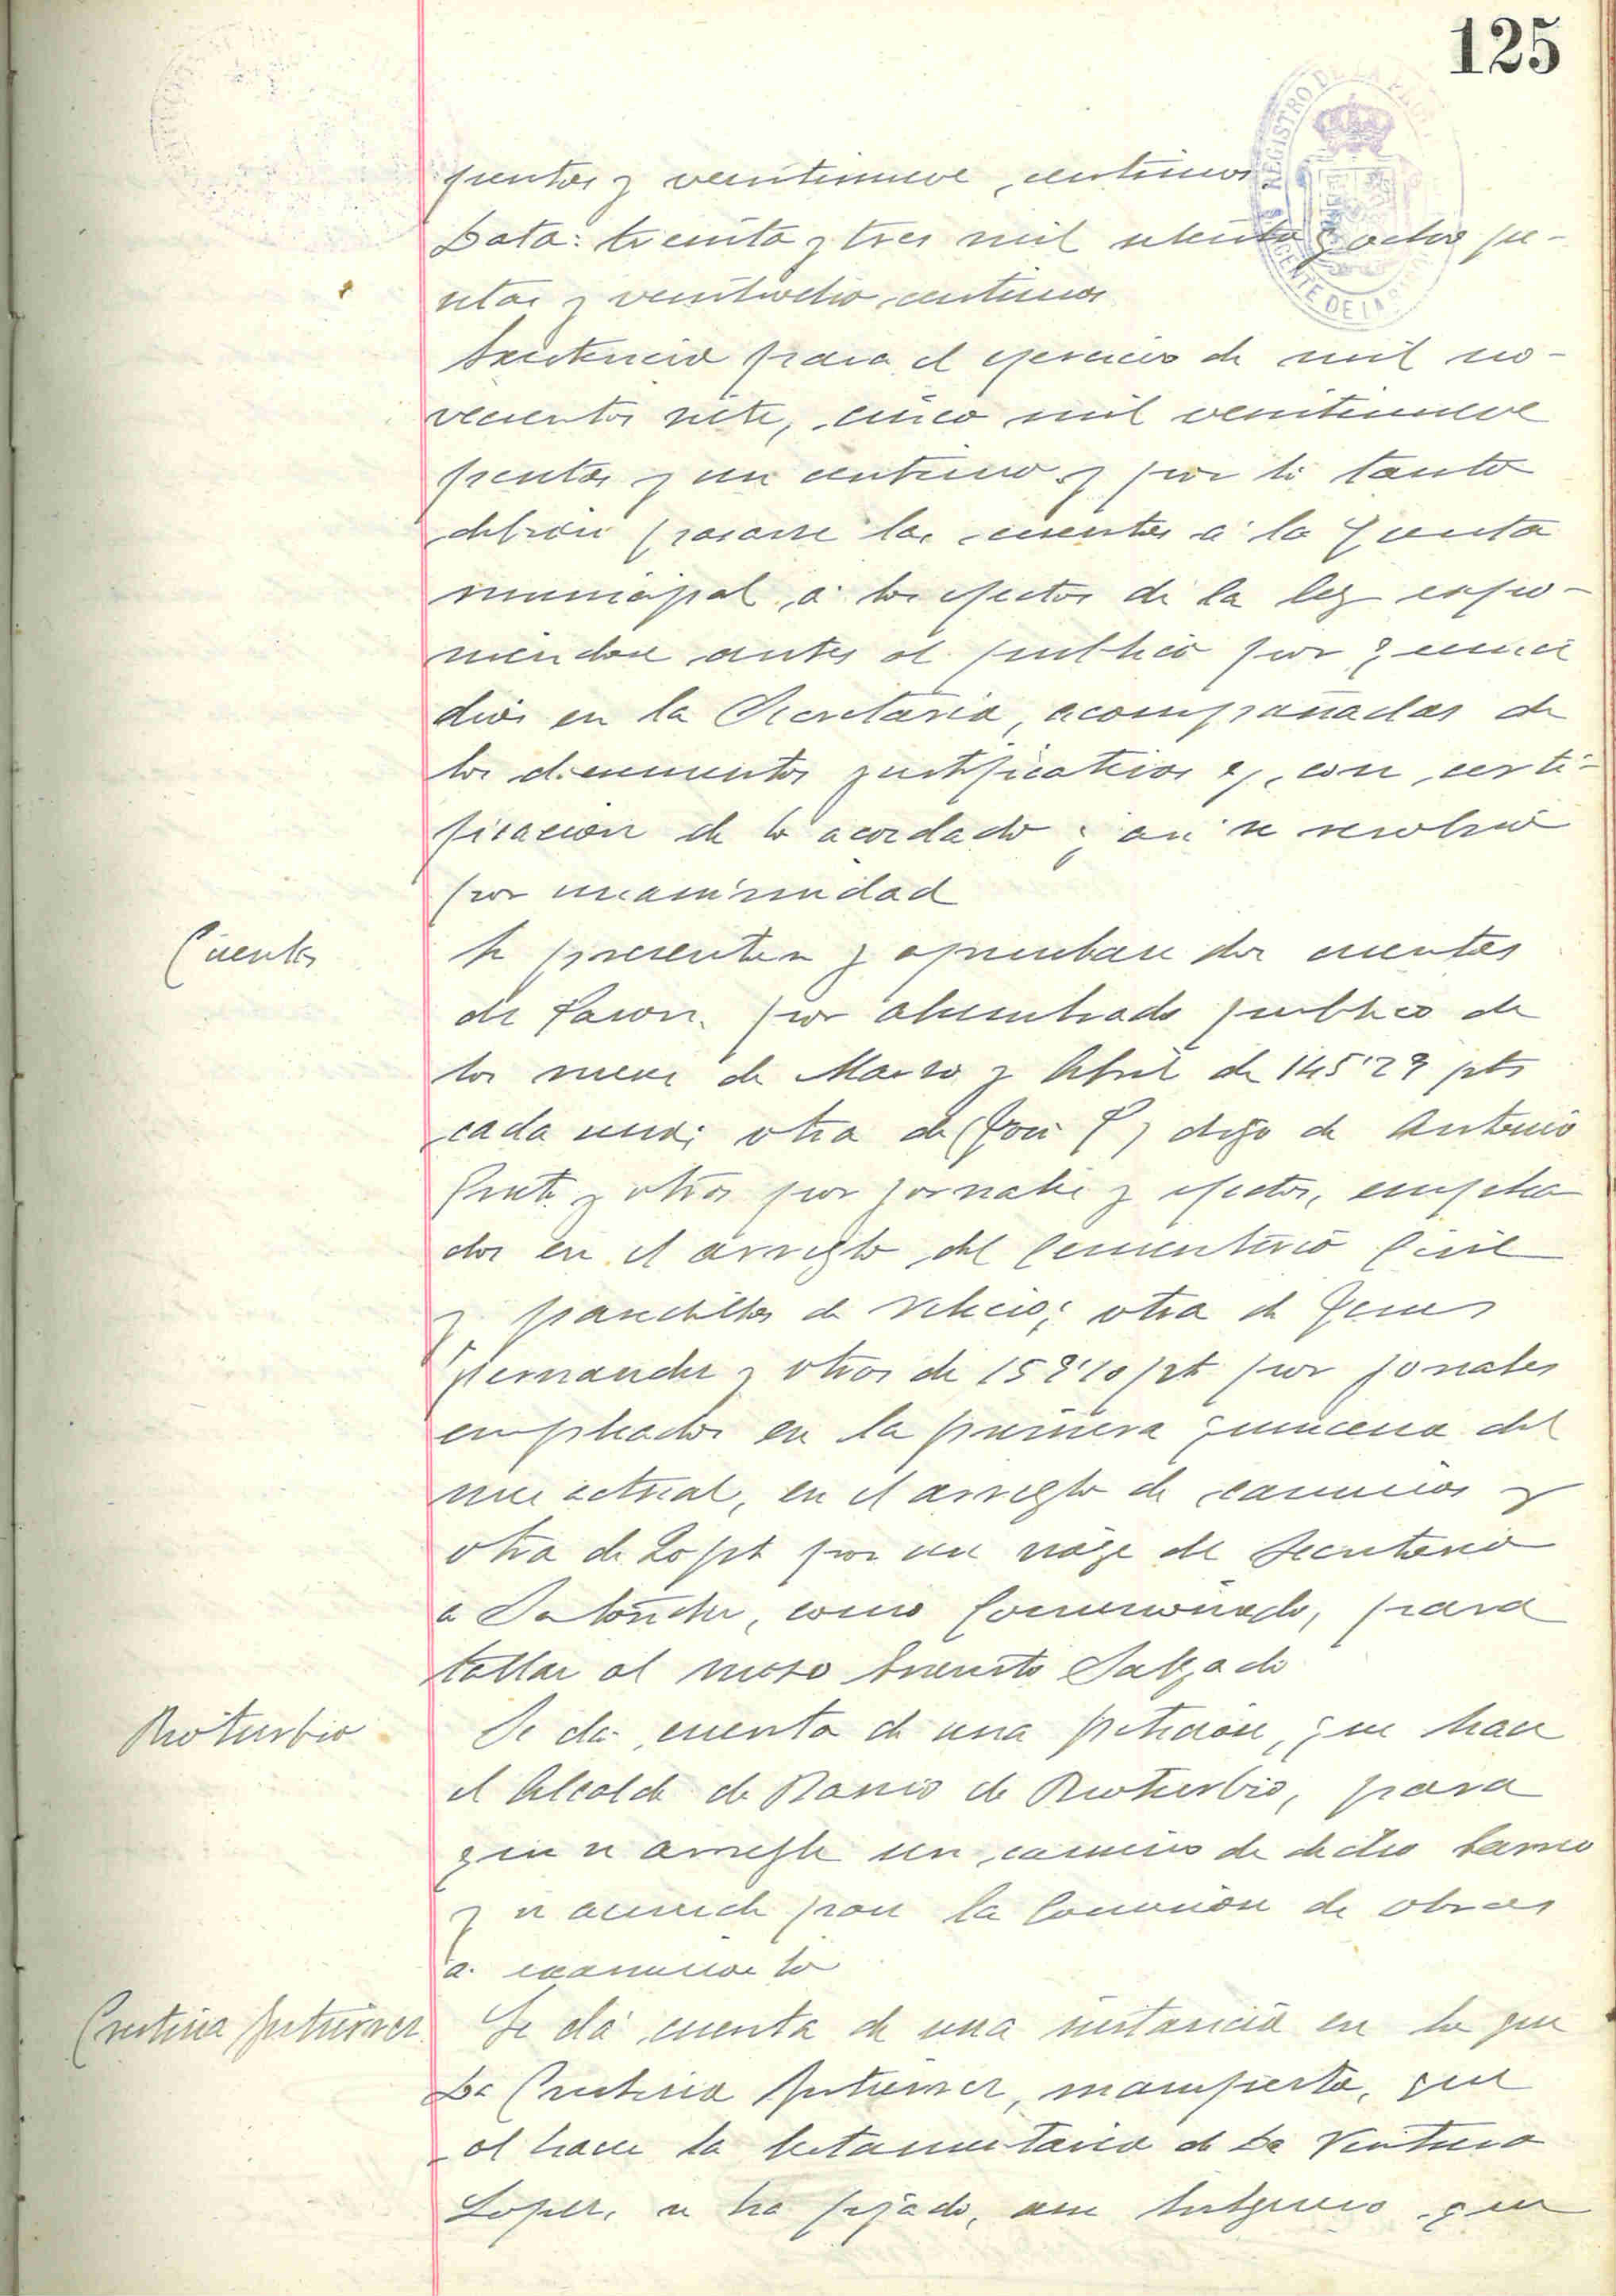 125
pesetas y veintinueve centimos
Data: treinta y tres mil setenta y ocho pe-
setas y veintiocho centimos
Existencia para el ejercicio de mil no-
vecientos siete, cinco mil veintinueve
pesetas y un centimo y por lo tanto
debian pasarse las cuentas á la Junta
municipal, á los efectos de la ley expo-
niendose antes al publico por quince
dias en la Secretaria, acompañadas de
los documentos justificativos y, con certi-
ficacion de lo acordado; asi se resolvió
por unanimidad
Cuentas
Se presentan y aprueban dos cuentas
de por alumbrado publico de
los meses de Marzo y Abril de 145'29 pts
cada una; otra de (José P) digo de Antonio
y otros por jornales y efectos, emplea
dos en el arreglo del Cementerio Civil
y de otra de Jesus
Hernandez y otros de pts por jornales
empleados en la primera quincena del
mes actual, en el arreglo de caminos y
otra de 20 pts por un viaje del Secretario
a Santander, como Comisionado, para
tallar al mozo Salgado
Rioturbio
Se da cuenta de una peticion, que hace
el Alcalde de Barrio de Rioturbio, para
que se arregle un camino de dicho barrio
y se acuerda pase la Comision de obras
a examinarlo
Cristina Gutierrez
Se dá cuenta de una instancia en la que
Da Cristina Gutierrez, manifiesta, que
al hacer la testamentaria de Da Ventura
Lopez, se ha fijado, que